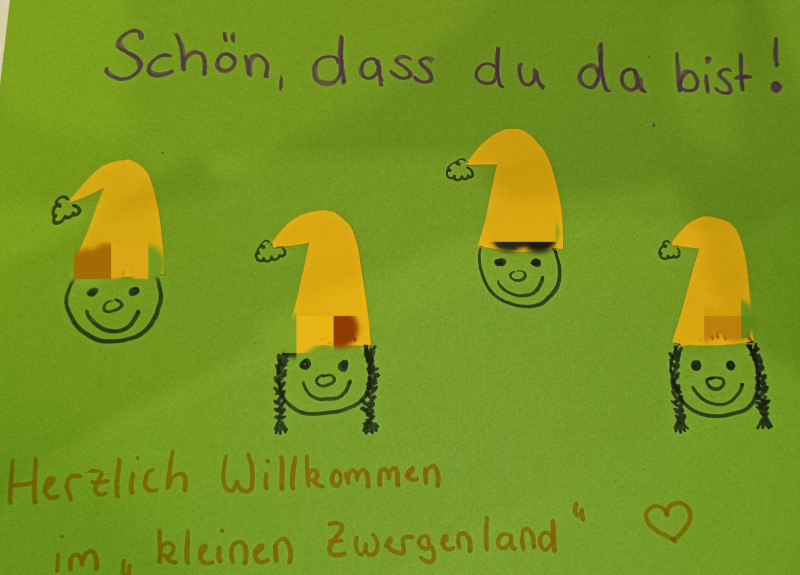 Schön, dass du da bist!
Herzlich Willkommen
im „kleinen Zwergenland“